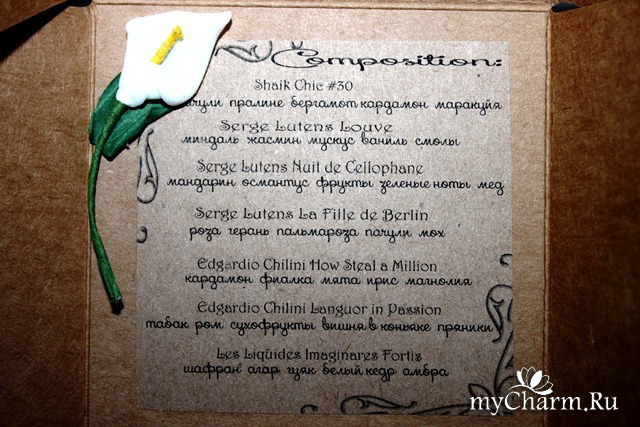 Composition:
Shaik Chic #30
пачули пралине бергамот кардамон маракуйя
Serge Lutens Louve
миндаль жасмин мускус ваниль смолы
Serge Lutens Nuit de Cellophane
мандарин османтус фрукты зеленые ноты мед
Serge Lutens La Fille de Berlin
роза герань пальмароза пачули мох
Edgardio Chilini How Steal a Million
кардамон фиалка мята ирис магнолия
Edgardio Chilini Languor in Passion
табак ром сухофрукты вишня в коньяке пряники
Les Liquides Imaginares Fortis
шафран агар гуяк белый кедр амбра
myCharm.Ru